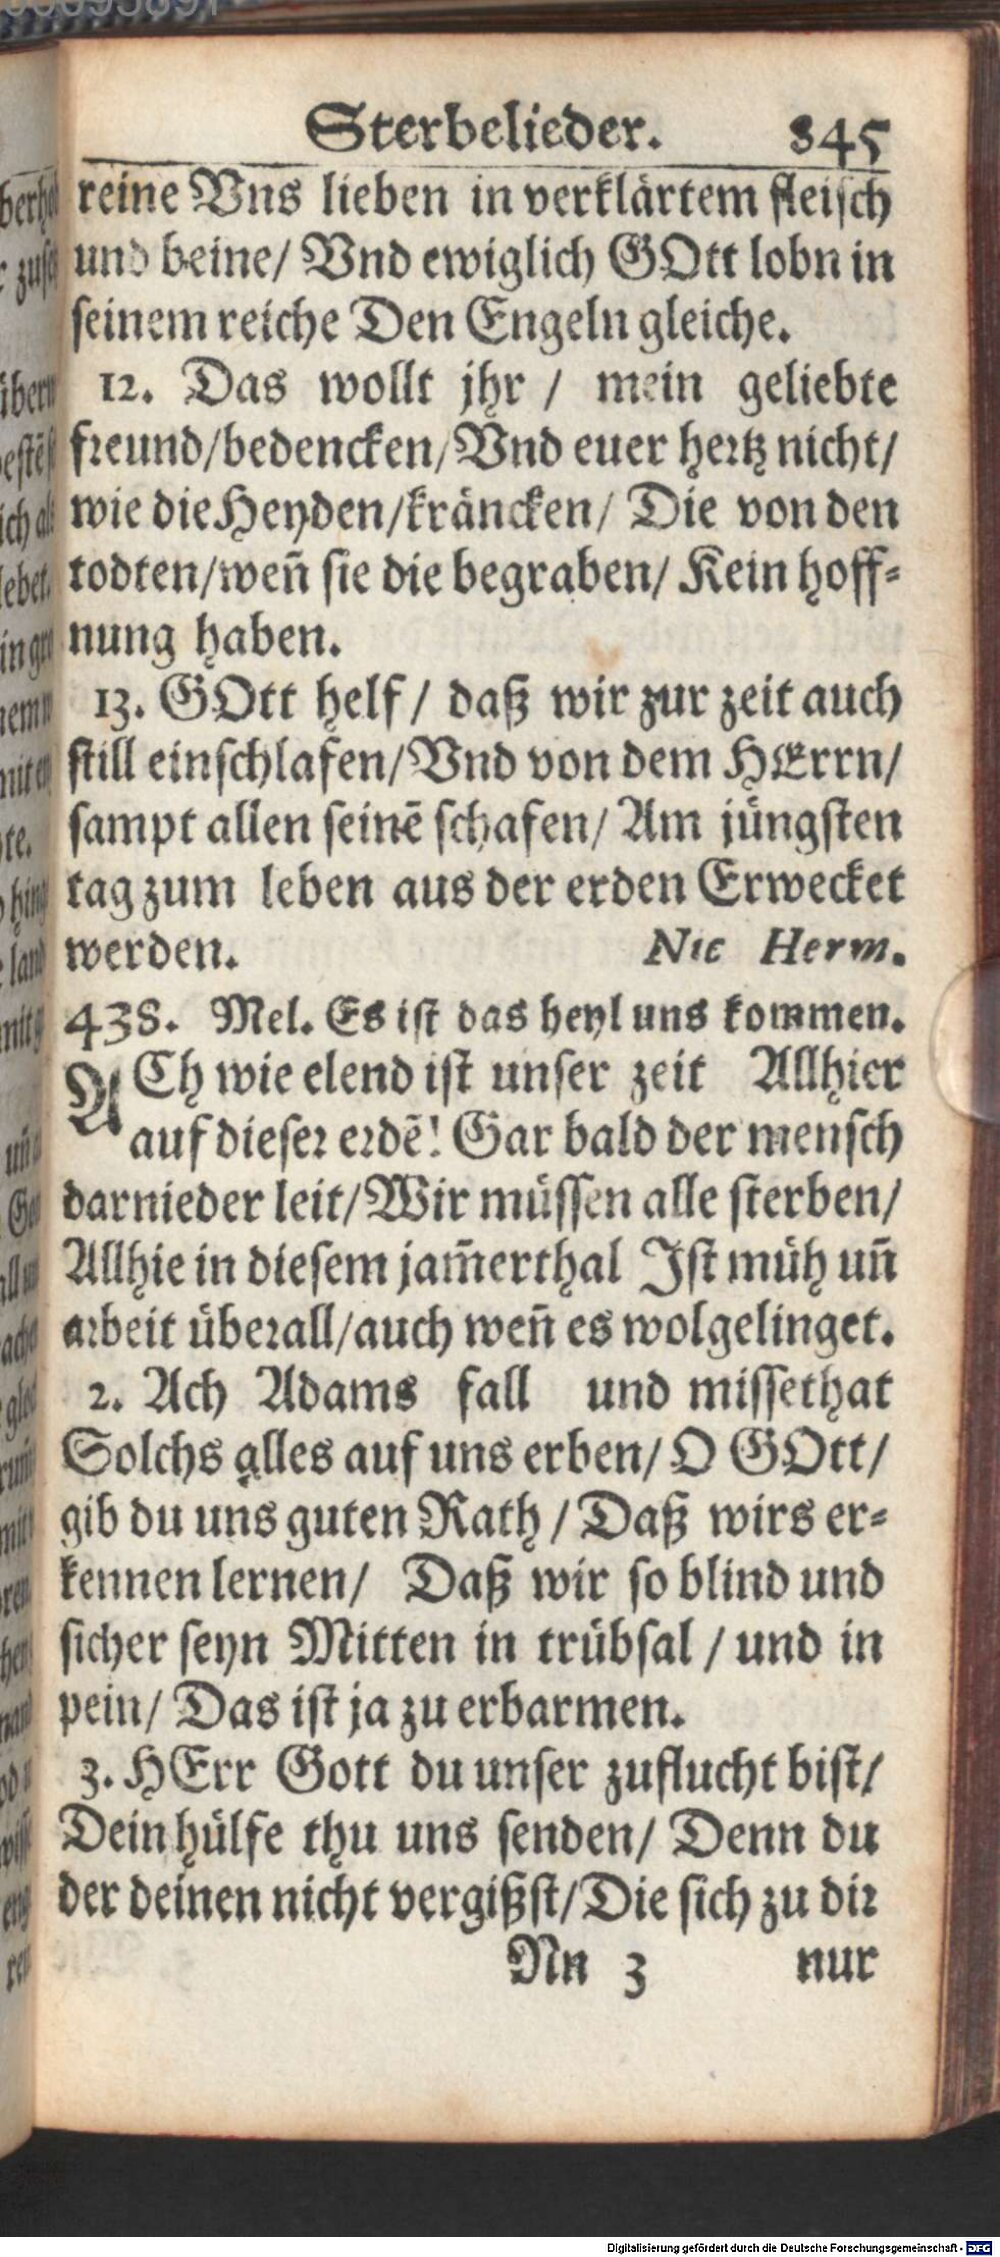 Sterbelieder. 845
reine Vns lieben in verklärtem fleisch
und beine/ Vnd ewiglich GOtt lobn in
seinem reiche Den Engeln gleiche.
12. Das wollt jhr / mein geliebte
freund/bedencken/Vnd euer hertz nicht/
wie die Heyden/kräncken/ Die von den
todten/weñ sie die begraben/ Kein hoff=
nung haben.
13. GOtt helf / daß wir zur zeit auch
still einschlafen/Vnd von dem HErrn/
sampt allen seinē schafen/ Am jüngsten
tag zum leben aus der erden Erwecket
werden. Nic Herm.
438. Mel. Es ist das heyl uns kommen.
ACh wie elend ist unser zeit Allhier
auf dieser erdē! Gar bald der mensch
darnieder leit/Wir müssen alle sterben/
Allhie in diesem jam̃erthal Ist müh uñ
arbeit überall/auch weñ es wolgelinget.
2. Ach Adams fall und missethat
Solchs alles auf uns erben/ O GOtt/
gib du uns guten Rath / Daß wirs er=
kennen lernen/ Daß wir so blind und
sicher seyn Mitten in trübsal / und in
pein/ Das ist ja zu erbarmen.
3. HErr Gott du unser zuflucht bist/
Dein hülfe thu uns senden/ Denn du
der deinen nicht vergißst/Die sich zu dir
Nn 3 nur
Digitalisierung gefördert durch die Deutsche Forschungsgemeinschaft - DFG